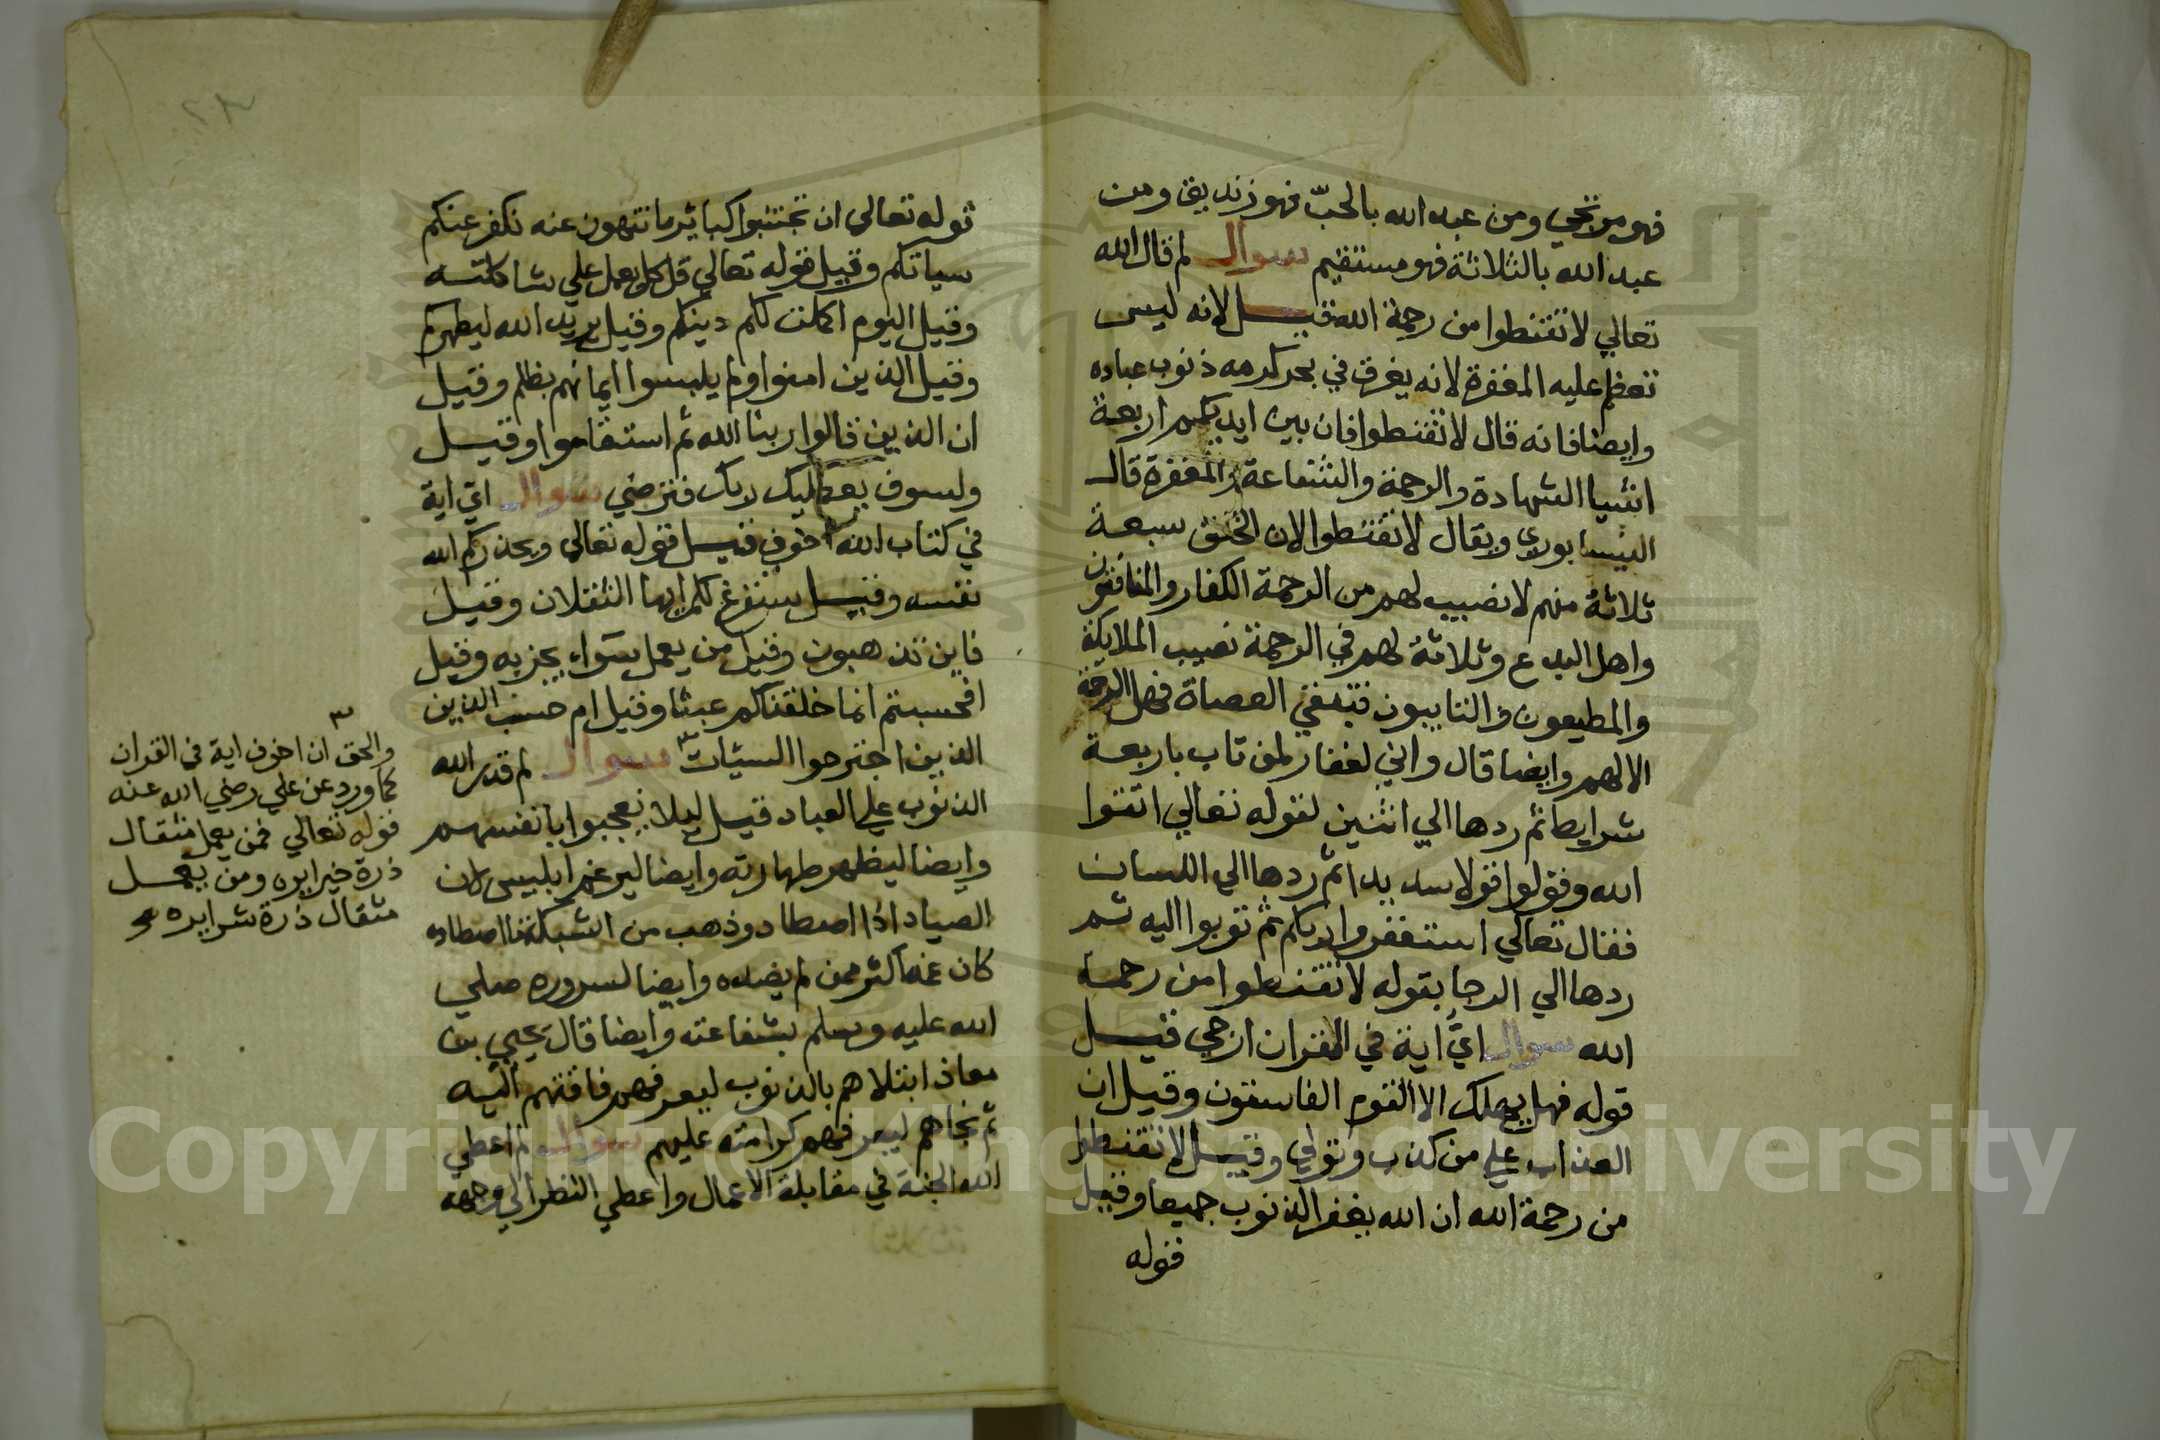 فهو مرتجي ومن عبد الله بالحبّ فهو زنديق ومن
عبد الله بالثلاثة فهو مستقيم سوال لم قال الله
تعالي لا تقنطوا من رحمة الله قيل لانه ليس
تعظم عليه المغفرة لانه يغرق في بحر كرمه ذنوب عباده
وايضا فانه قال لا تقنطوا فان بين ايديكم اربعة
اشيا الشهادة والرحمة والشفاعة والمغفرة قال
النيسابوري ويقال لا تقنطوا لان الخلق سبعة
ثلاثة منهم لا نصيب لهم من الرحمة الكفار والمنافقون
واهل البدع وثلاثة لهم في الرحمة نصيب الملايكة
والمطيعون والتايبون فتبقي العصاة فهل الرحمة
الا لهم وايضا قال واني لغفار لمن تاب باربعة
شرايط ثم ردها الي اثنين لقوله تعالي اتقوا
الله وقولوا قولا سديدا ثم ردها الي اللسان
فقال تعالي استغفروا ربكم ثم توبوا اليه ثم
ردها الي الرجا بقوله لا تقنطوا من رحمة
الله سوال ايّ اية في القران ارجي قيل
قوله فهل يهلك الا القوم الفاسقون وقيل ان
العذاب علي من كذب وتولي وقيل لا تقنطوا
من رحمة الله ان الله يغفر الذنوب جميعا وقيل
قوله
٢٣
قوله تعالي ان تجتنبوا كباير ما تنهون عنه نكفر عنكم
سياتكم وقيل قوله تعالي قل كل يعمل علي شاكلته
وقيل اليوم اكملت لكم دينكم وقيل يريد الله ليطهركم
وقيل الذين امنوا ولم يلبسوا ايمانهم بظلم وقيل
ان الذين قالوا ربنا الله ثم استقاموا وقيل
ولسوف يعطيك ربك فترضي سوال ايّ اية
في كتاب الله اخوف قيل قوله تعالي ويحذركم الله
نفسه وقيل سنفرغ لكم ايها الثقلان وقيل
فاين تذهبون وقيل من يعمل سوء يجز به وقيل
افحسبتم انما خلقناكم عبثا وقيل ام حسب الذين
الذين اجترحوا السيئات سوال لم قدر الله
الذنوب علي العباد قيل ليلا يعجبوا بانفسهم
وايضا ليظهر طهارته وايضا ليرغم ابليس لان
الصياد اذا اصطاد وذهب من الشبكة ما اصطاده
كان غمه اكثر ممن لم يصده وايضا لسروره صلي
الله عليه وسلم بشفاعته وايضا قال يحيي بن
معاذ ابتلاهم بالذنوب ليعرفهم فاقتهم اليه
ثم نجاهم ليعرفهم كرامته عليهم سوال لم اعطي
الله الجنة في مقابلة الاعمال واعطي النظر الي وجهه
والحق ان اخوف اية في القران
كما ورد عن علي رضي الله عنه
قوله تعالي فمن يعمل مثقال
ذرة خيرا يره ومن يعمل
مثقال ذرة شرا يره
Copyright © King Saud University